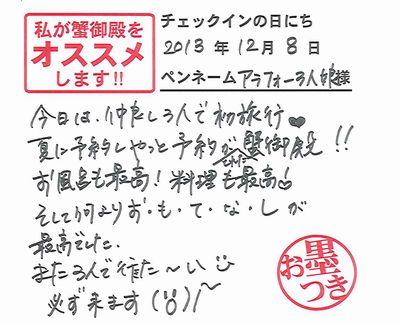 私が蟹御殿を
オススメ
します!!
チェックインの日にち
2013年12月8日
ペンネーム アラフォー3人娘様
今日は、仲良し3人で初旅行♥
夏に予約しやっと予約がとれた蟹御殿!!
お風呂も最高!料理も最高!
そして何よりお・も・て・な・しが
最高でした。
また3人で来た〜い
必ず来ます
お墨つき